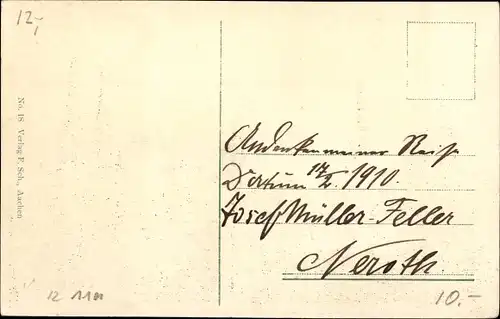 12,-
No. 18 Verlag F. Sch., Aachen
Andenken meiner Reise
Datum 17/2. 1910.
Josef Müller-Feller
Neroth.
12
10.-